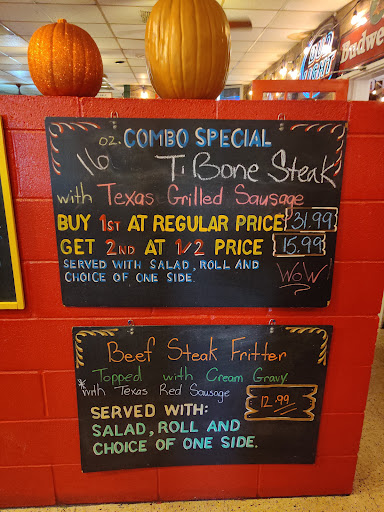 BUD
LIGHT
Budw
16 OZ. COMBO SPECIAL
T. Bone Steak
with Texas Grilled Sausage
BUY 1ST AT REGULAR PRICE 31.99
GET 2ND AT 1/2 PRICE 15.99
SERVED WITH SALAD, ROLL AND
CHOICE OF ONE SIDE.
WOW
Beef Steak Fritter
Topped with Cream Gravy
*with Texas Red Sausage
12.99
SERVED WITH:
SALAD, ROLL AND
CHOICE OF ONE SIDE.